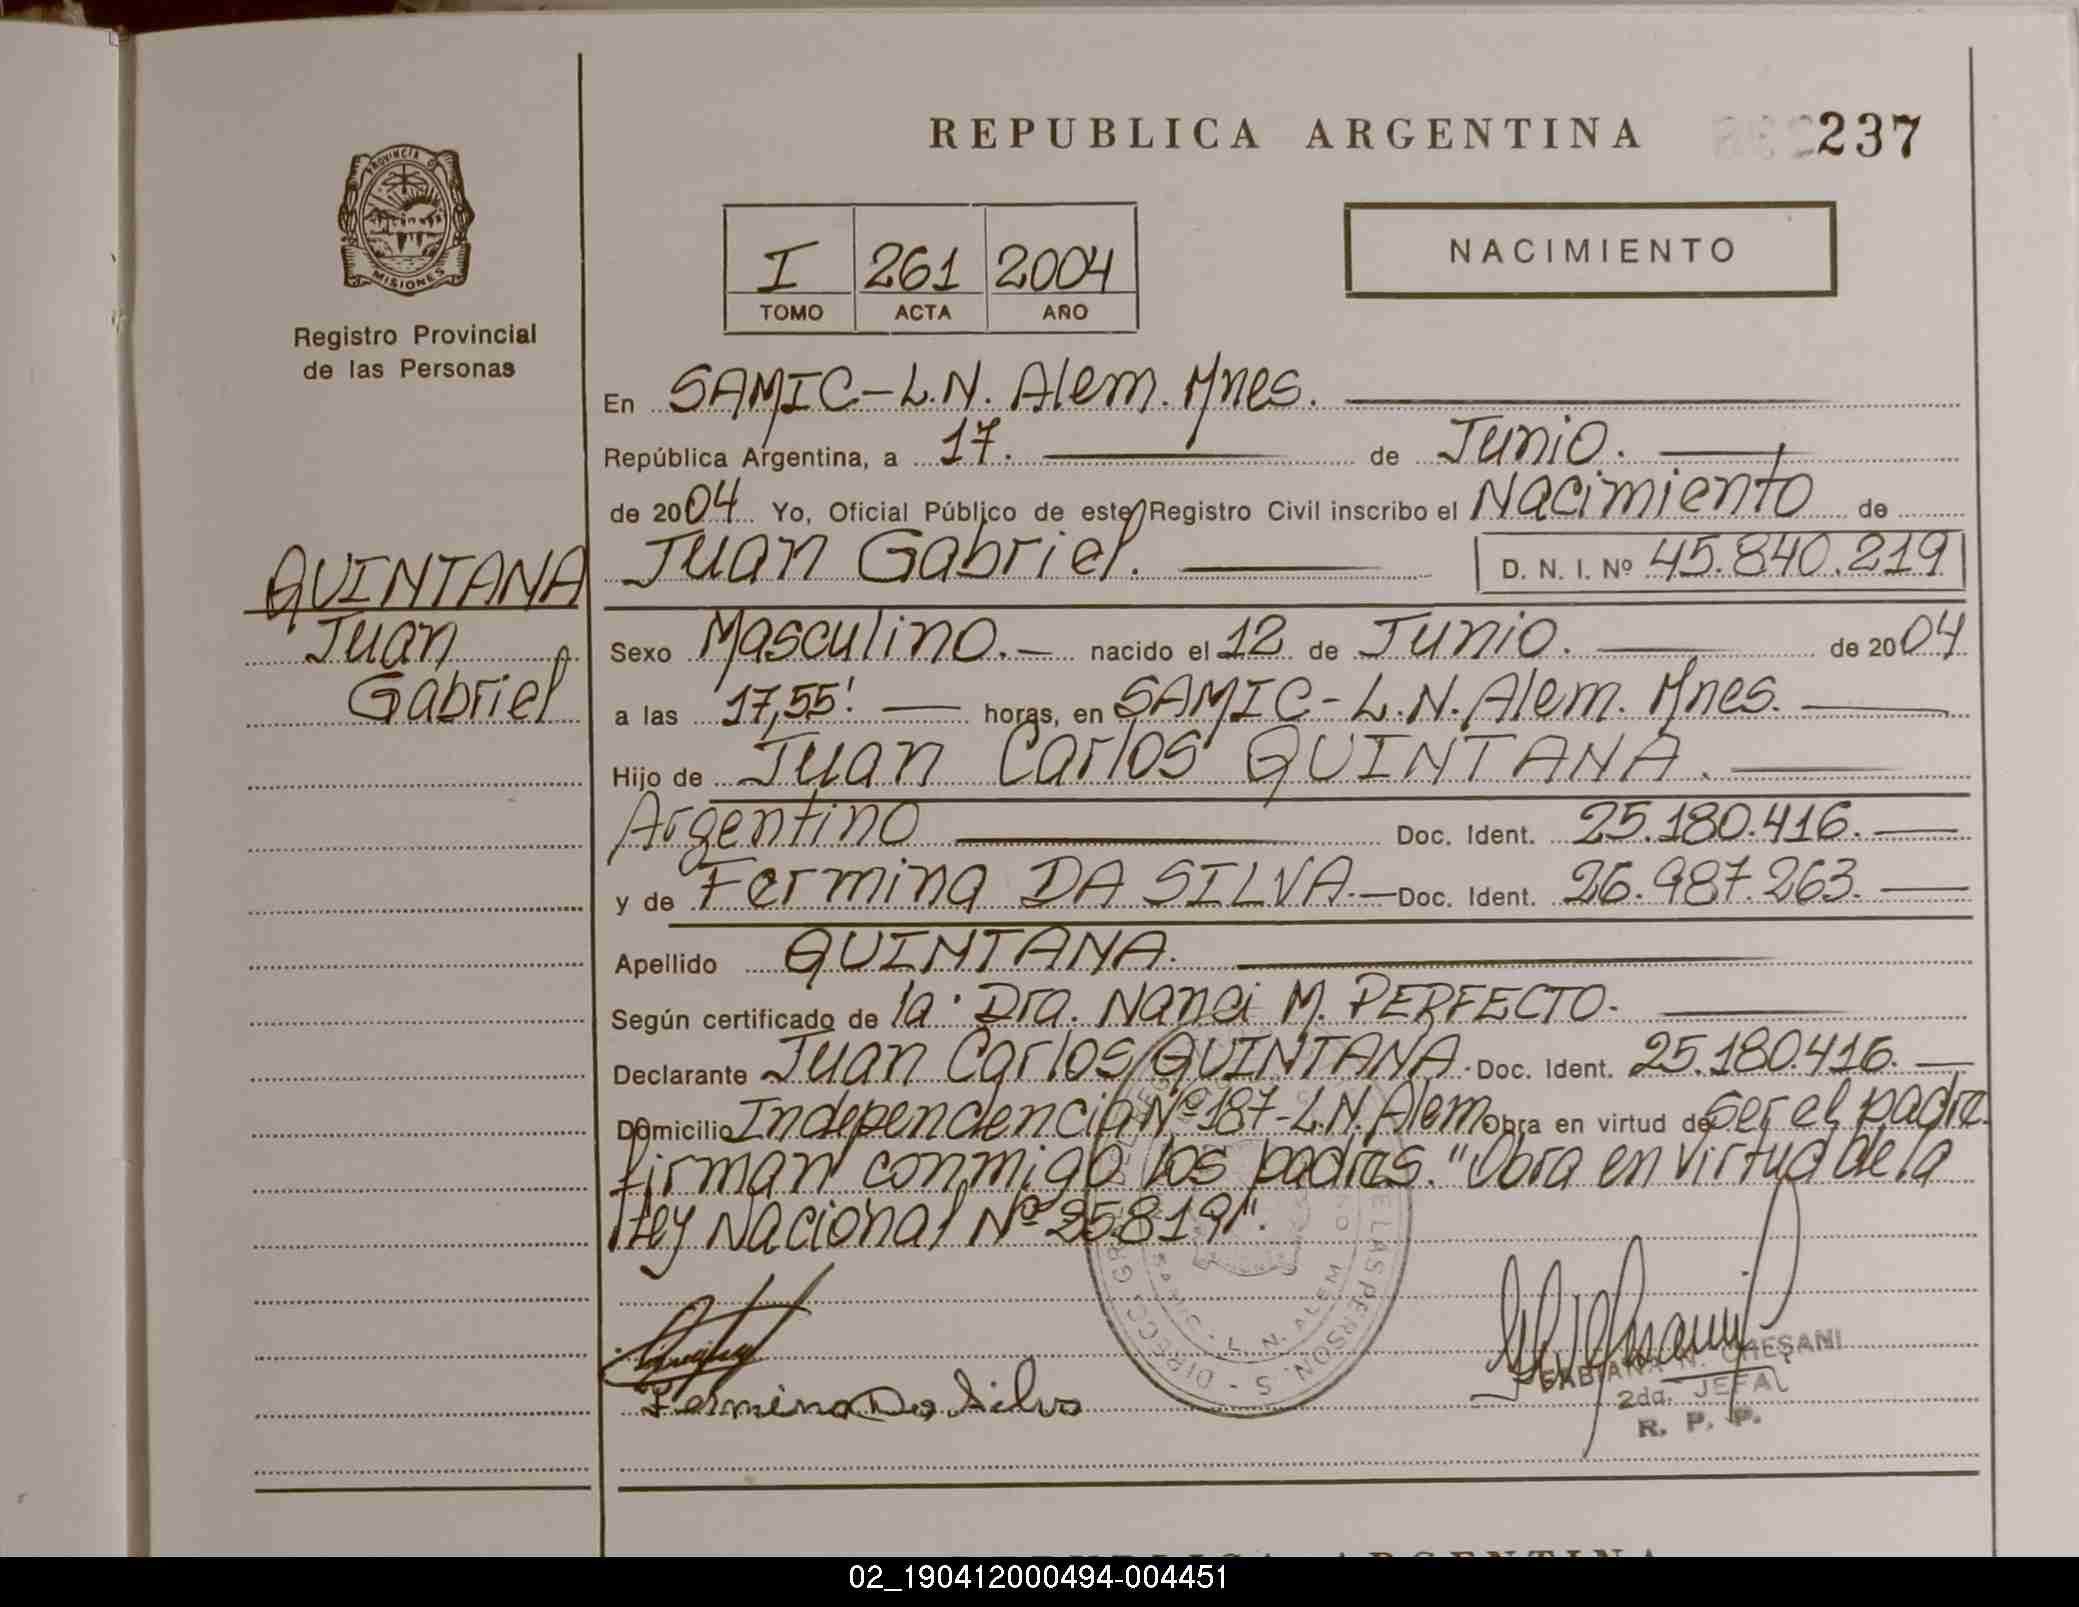 REPUBLICA ARGENTINA 237
PROVINCIA D
MISIONES
Registro Provincial
de las Personas
I 261 2004
TOMO ACTA AÑO
NACIMIENTO
En SAMIC-L.N. Alem. Mnes.
República Argentina, a 17. de Junio.
de 2004 Yo, Oficial Público de este Registro Civil inscribo el Nacimiento de
Juan Gabriel. D. N. I. Nº 45.840.219
QUINTANA
Juan
Gabriel
Sexo Masculino.- nacido el 12 de Junio. de 2004
a las 17,55' horas, en SAMIC-L.N. Alem. Mnes.
Hijo de Juan Carlos QUINTANA.
Argentino Doc. Ident. 25.180.416.
y de Fermina DA SILVA.- Doc. Ident. 26.987.263.
Apellido QUINTANA.
Según certificado de la Dra. Nanci M. PERFECTO.
Declarante Juan Carlos QUINTANA. Doc. Ident. 25.180.416.
Domicilio Independencia Nº 187-L.N. Alem Obra en virtud de ser el padre.
firman conmigo los padres. "Obra en virtud de la
Ley Nacional Nº 25819".
Fermina Da Silva
FABIANA N. CHESANI
2da. JEFA
R. P. P.
L. N. ALEM
02_190412000494-004451